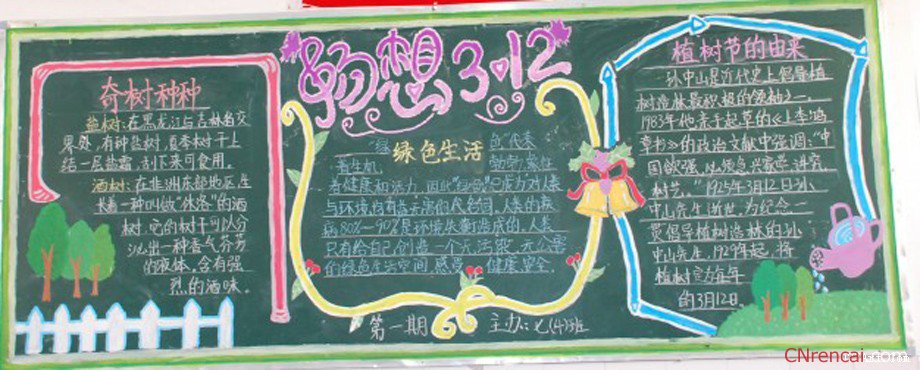 畅想3·12
奇树种种
盐树:在黑龙江与吉林省交
界处,有种盐树,夏季树干上
结一层盐霜,刮下来可食用。
酒树:在非洲东部地区生
长着一种叫做“休洛”的酒
树,它的树干可以分
泌出一种香气芬芳
的液体,含有强
烈的酒味。
绿色生活
“绿 色”代表
着生机 勃勃,象征
着健康和活力,因此“绿色”已成为对人类
与环境均有益无害的代名词,人类的疾
病80%-90%是环境失衡造成的,人类
只有给自己创造一个无污染、无公害
的绿色生活空间,感受 健康,安全。
第一期 主办:七(4)班
植树节的由来
孙中山是近代史上倡导植
树造林最积极的领袖之一,
1983年他亲手起草的《上李鸿
章书》的政治文献中强调:“中
国欲强,须急兴农学,讲究
树艺。”1925年3月12日孙
中山先生逝世,为纪念一
贯倡导植树造林的孙
中山先生,1929年起,将
植树定为每年
的3月12日
CNrencai